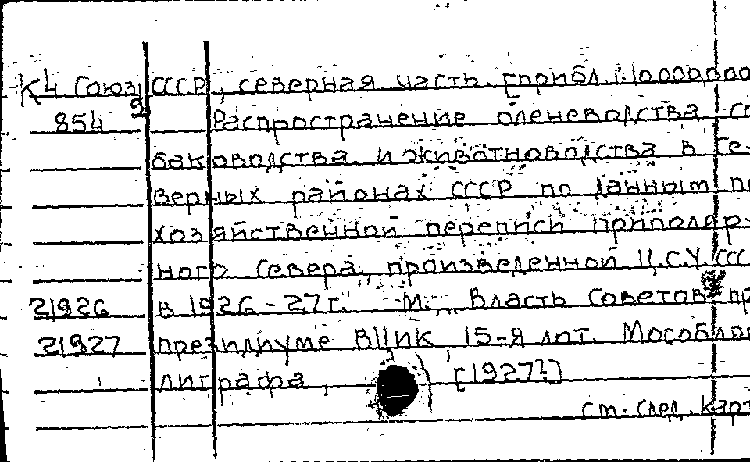 К4 Союз СССР, северная часть. [прибл. 1:10000000
854 9 Распространение оленеводства со
баководства и животноводства в Се-
верных районах СССР по данным по
хозяйственной переписи приполяр-
ного Севера, произведенной Ц.С.У. ССС
21926 в 1926-27 г. М., Власть Советов пр
21927 президиуме ВЦИК 15-я лит. Мособлпо
лиграфа, [1927?]
см. след. карт